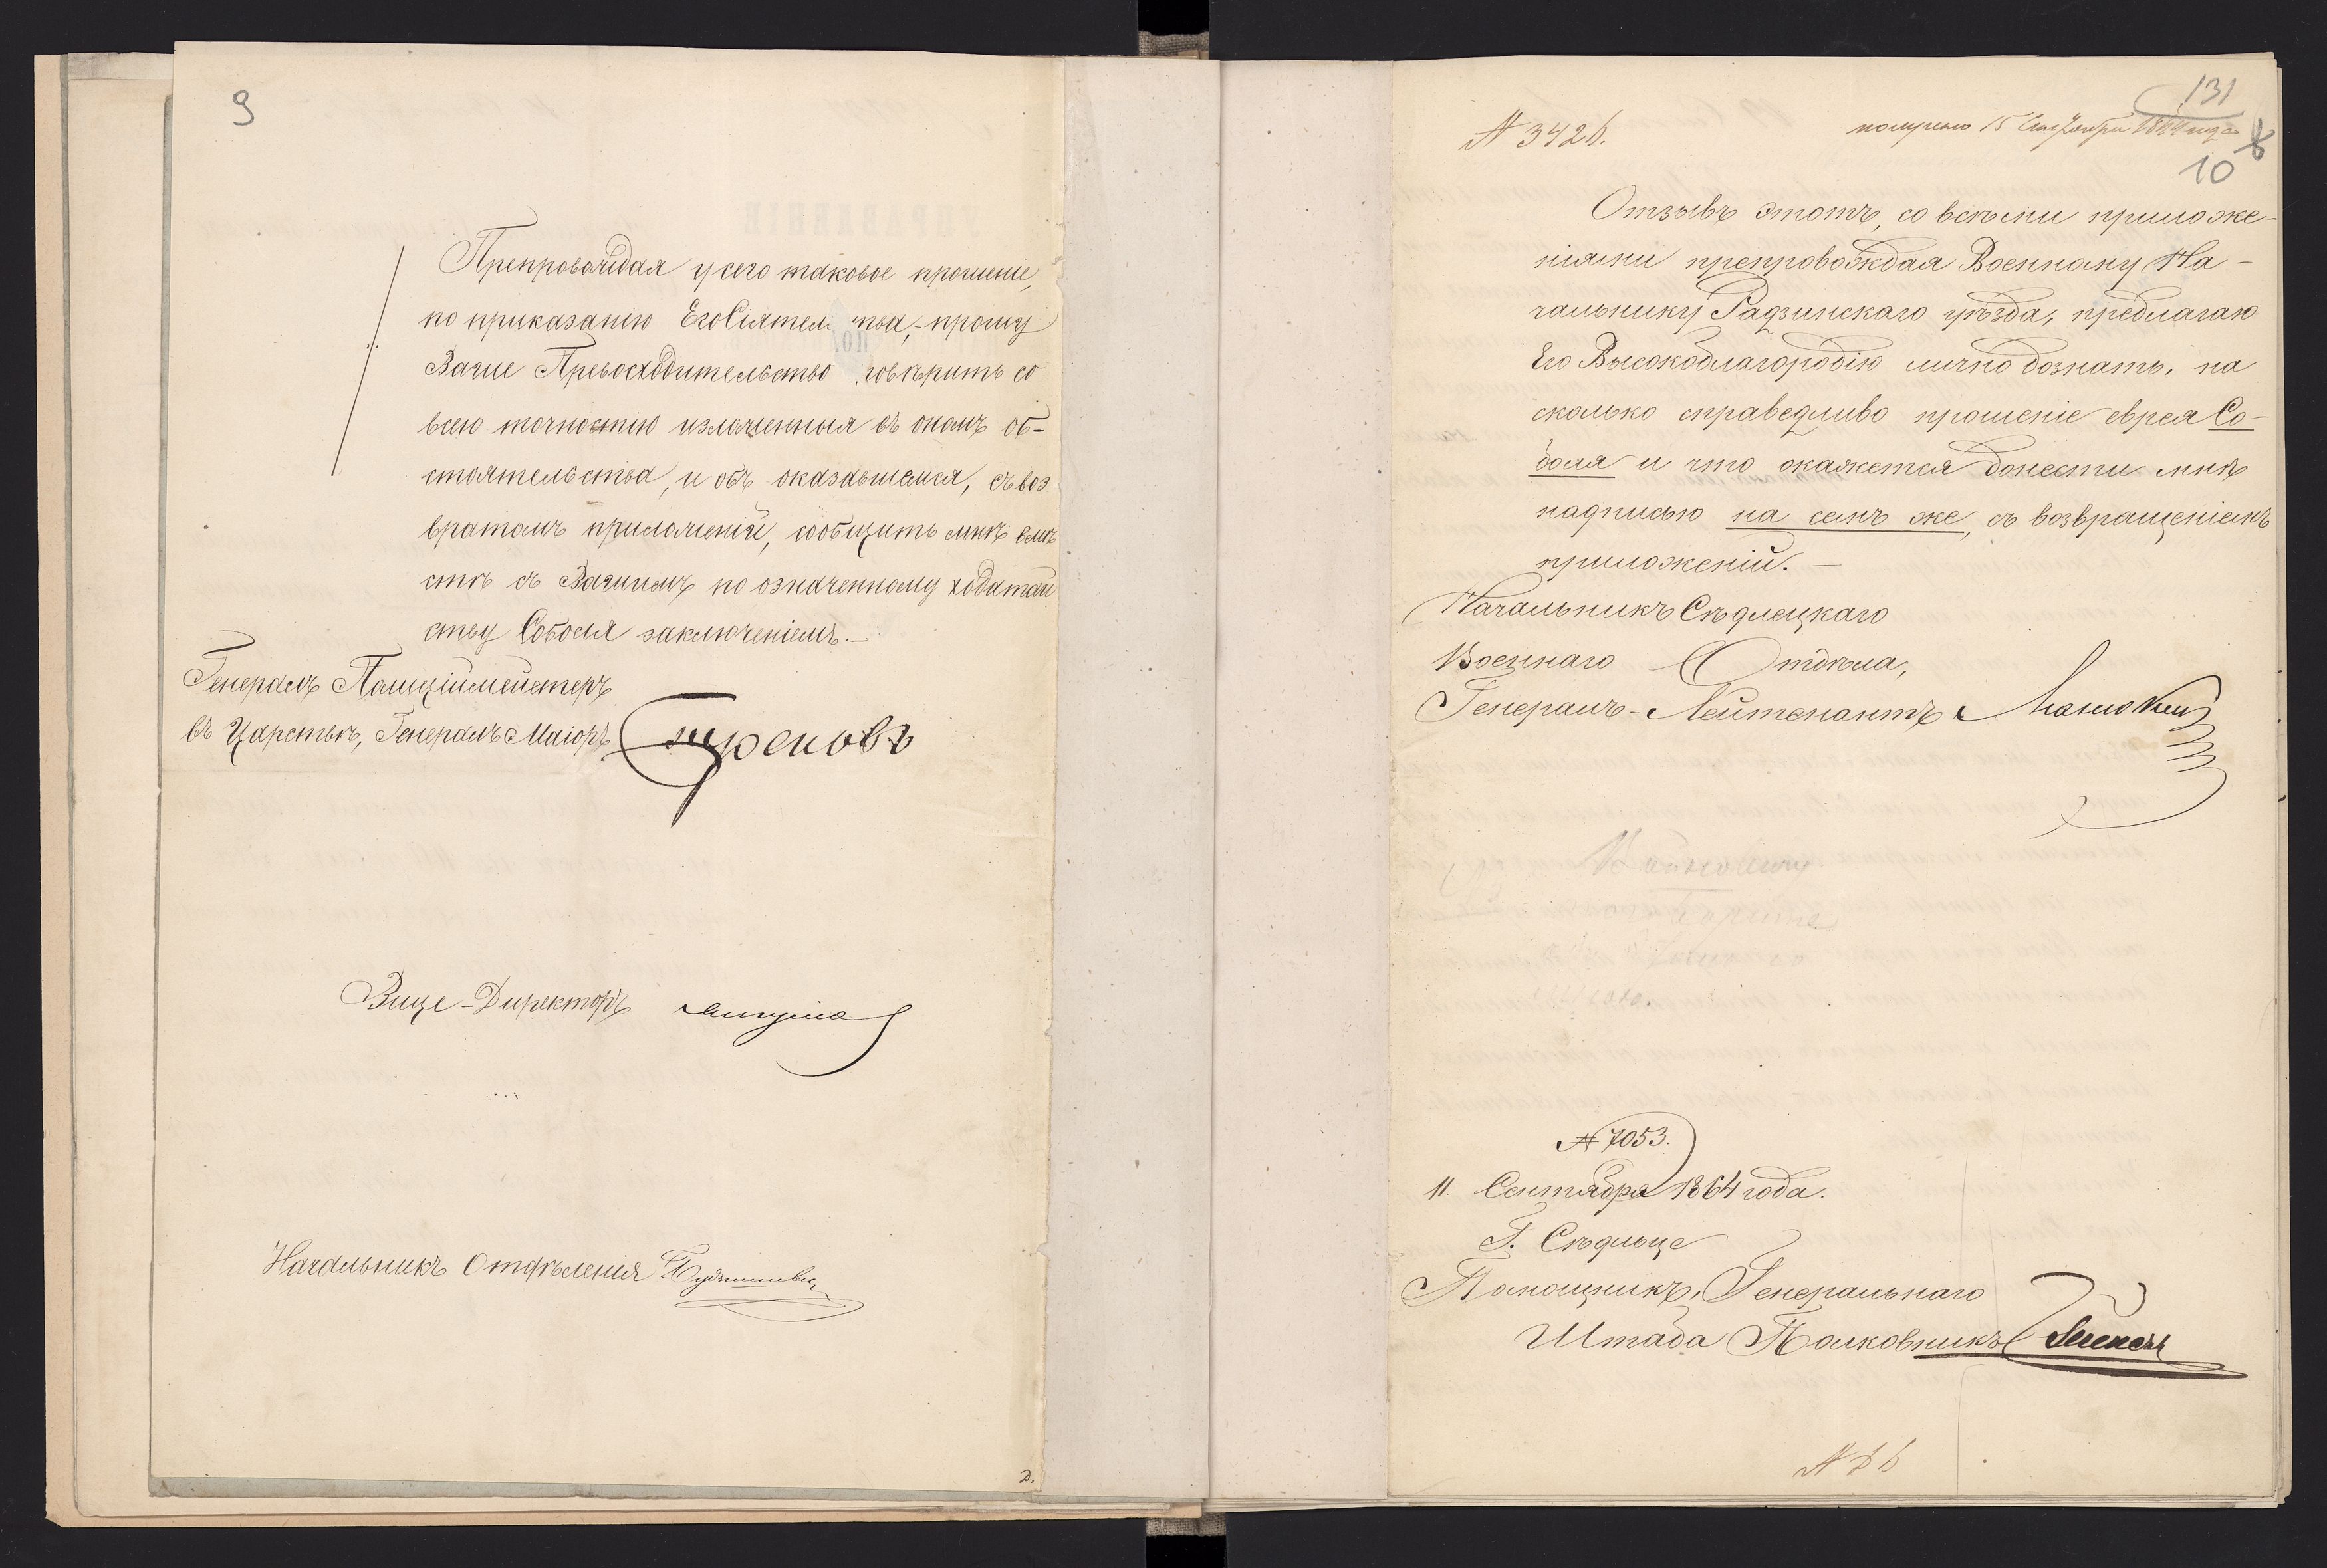 9
Препровождая у сего таковое прошеніе,
по приказанію Его Сіятель тва,- прошу
Ваше Превосходительство, повѣрить со
всею точностію изложенныя въ ономъ об-
стоятельства, и объ оказавшемся, съ воз
вратомъ приложеній, сообщить мнѣ вмѣ
стѣ съ Вашимъ по означенному ходатай
ству Соболя заключеніемъ.—
Генералъ Полиціймейстеръ
въ Царствѣ, Генералъ Маіоръ Треповъ
Вице-Директоръ
Начальникъ Отдѣленія
2.
131
№ 3426.
получено 15 Сентября 1864 года
10
Отзывъ этотъ, со всѣми приложе-
ніями препровождая Военному На-
чальнику Радзинскаго уѣзда, предлагаю
Его Высокоблагородію лично дознать, на
сколько справедливо прошеніе еврея Со-
боля и что окажется донести мнѣ
надписью на семъ же, съ возвращеніемъ
приложеній.—
Начальникъ Сѣдлецкаго
Военнаго Отдѣла,
Генералъ-Лейтенантъ
№ 7053.
11. Сентября 1864 года.
Г. Сѣдльце
Помощникъ, Генеральнаго
Штаба Полковникъ